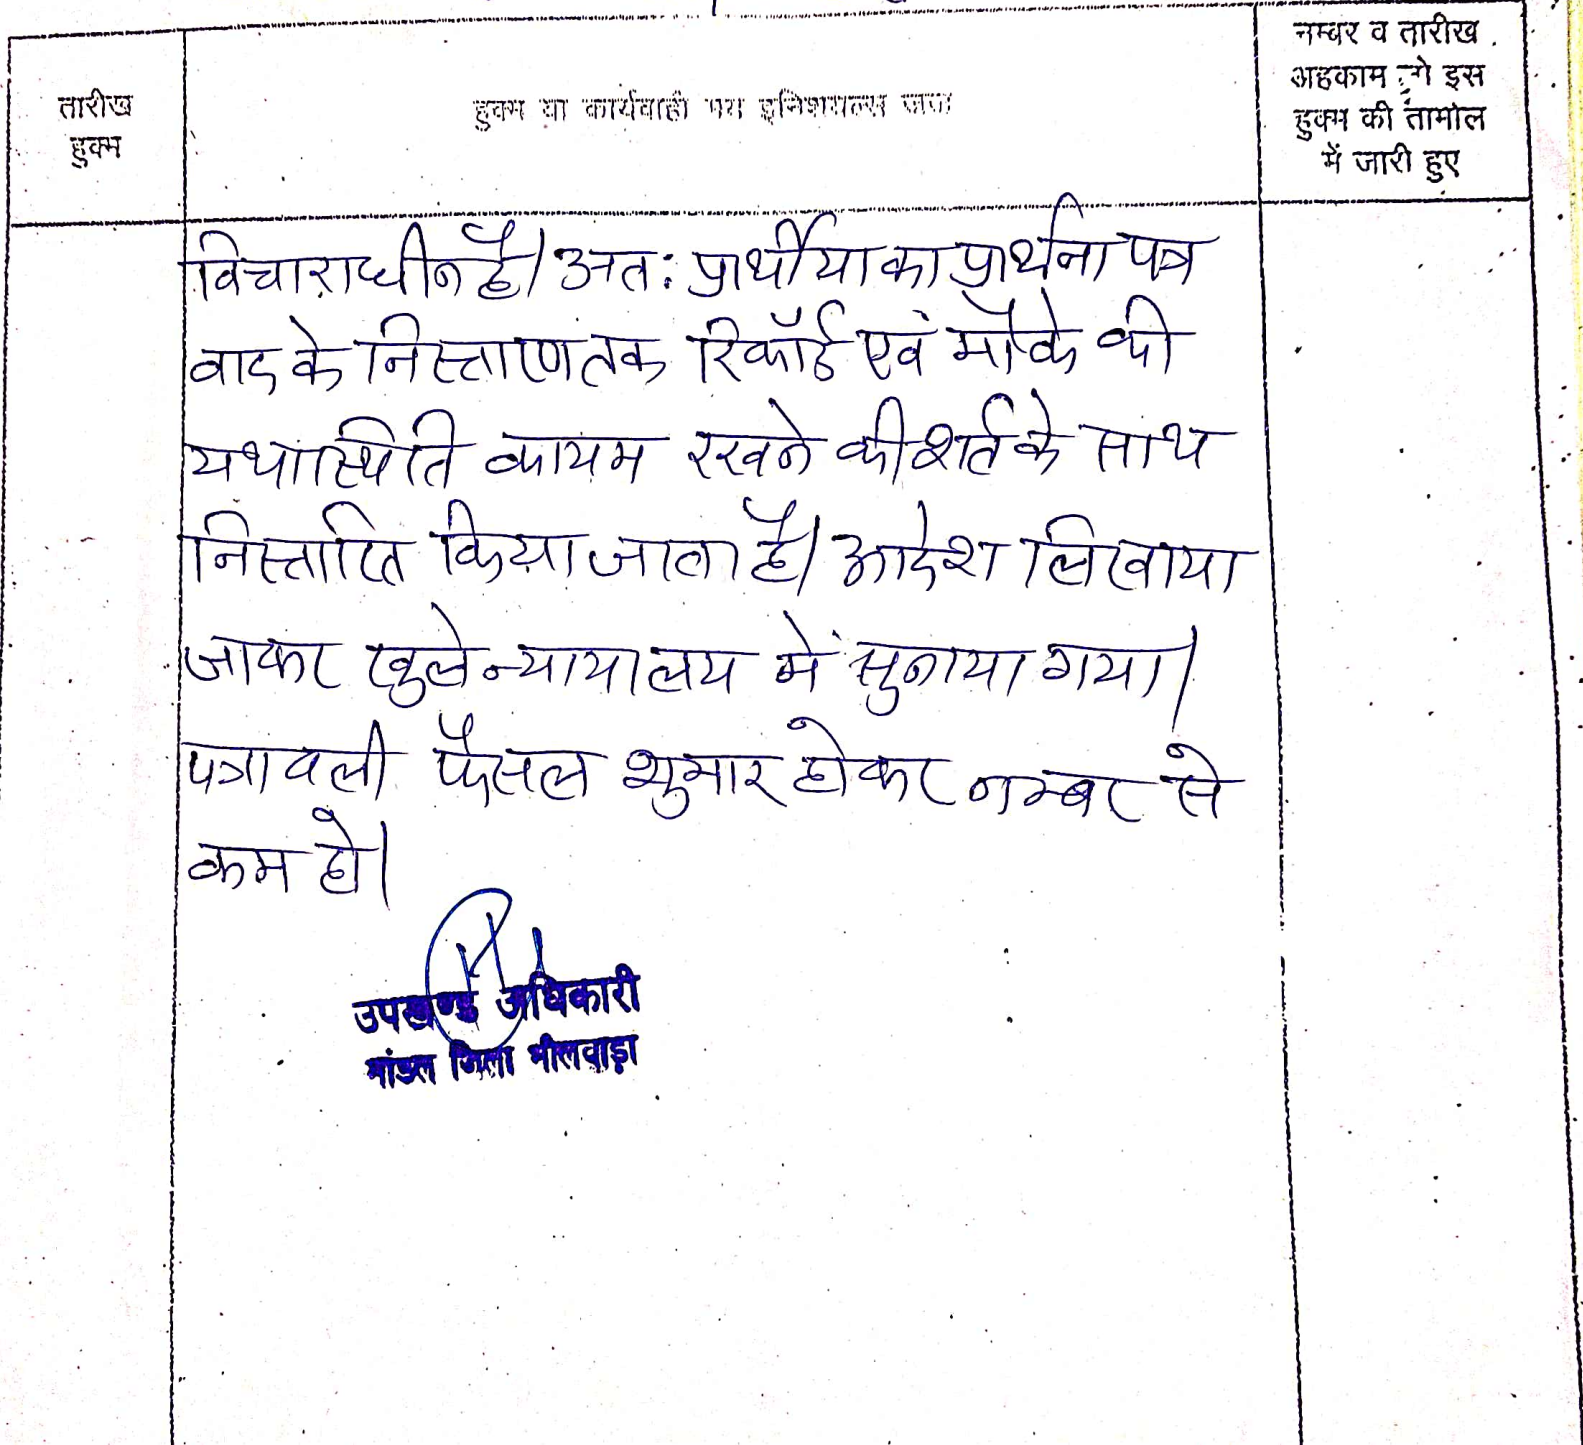 तारीख
हुक्म
हुक्म या कार्यवाही मय इनिशयल्स जज
नम्बर व तारीख
अहकाम इस
हुक्म की तामील
में जारी हुए
विचाराधीन है। अतः प्रार्थीया का प्रार्थना पत्र
वाद के निस्तारण तक रिकॉर्ड एवं मौके की
यथास्थिति कायम रखने की शर्त के साथ
निस्तारित किया जाता है। आदेश लिखाया
जाकर खुले न्यायालय में सुनाया गया।
पत्रावली फैसल शुमार होकर नम्बर से
कम हो।
उपखण्ड अधिकारी
मांडल जिला भीलवाड़ा